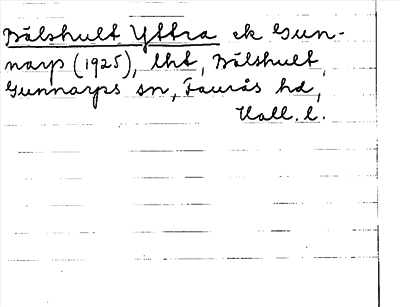 Bälshult Yttra ek Gun-
narp (1925), lht, Bälshult,
Gunnarps sn, Faurås hd,
Hall. l.